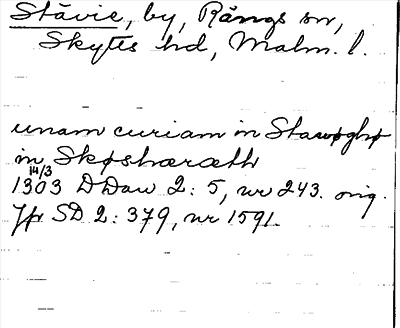 Stävie, by, Rängs sn,
Skytts hd, Malm. l.
unam curiam in Stawøghø
in Skøshæræth
14/3
1303 DDan 2: 5, nr 243. orig.
Jfr SD 2: 379, nr 1591.